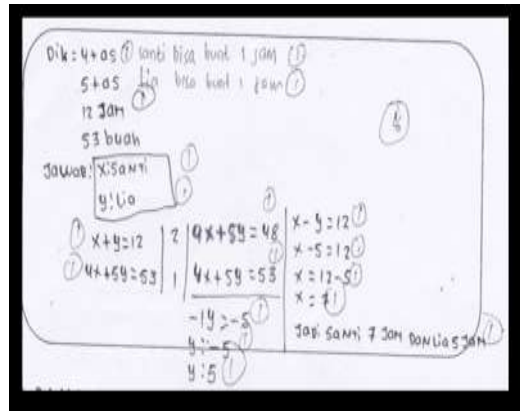 Dik: 4 tas ① santi bisa buat 1 jam ①
5 tas lia bisa buat 1 jam ①
12 Jam ①
53 buah
Jawab: X: Santi ①
y: Lia ①
① x+y=12 | 2 | 4x+5y=48 ①
① 4x+5y=53 | 1 | 4x+5y=53 ①
-1y=-5 ①
y=-5 ①
y:5 ①
x-y=12 ①
x-5=12 ①
x=12-5 ①
x=7 ①
Jadi Santi 7 Jam Dan Lia 5 Jam ①